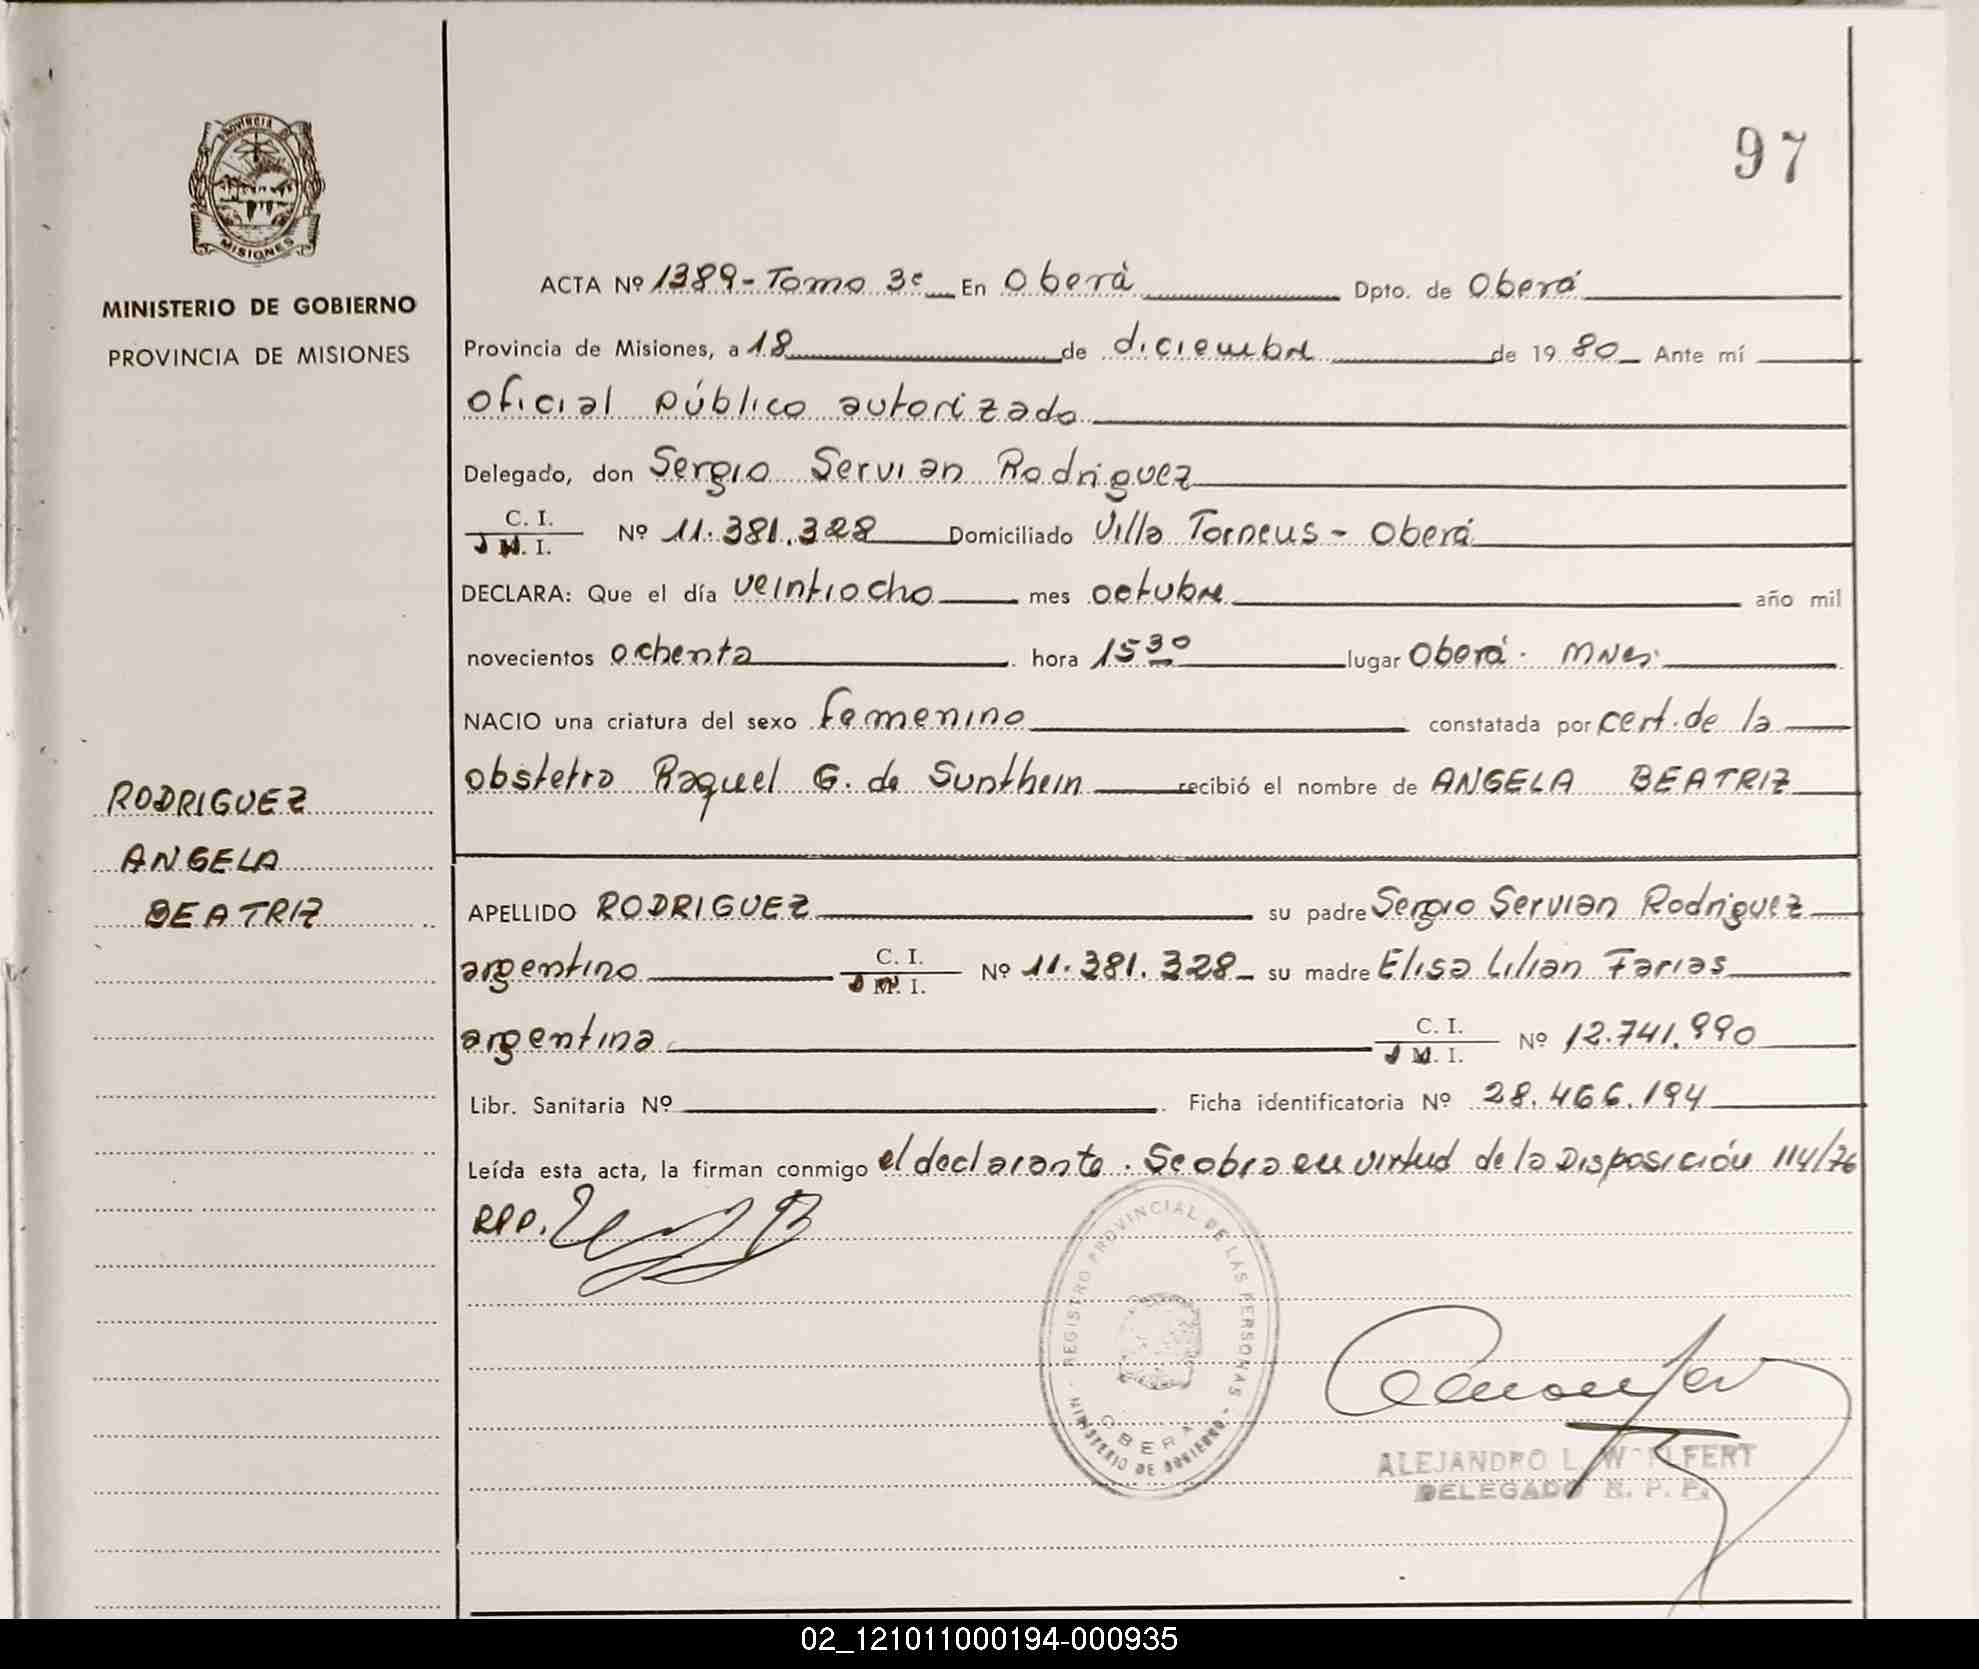 97
PROVINCIA DE
MISIONES
MINISTERIO DE GOBIERNO
PROVINCIA DE MISIONES
ACTA Nº 1389 - Tomo 3º En Oberá Dpto. de Oberá
Provincia de Misiones, a 18 de diciembre de 1980 Ante mí
oficial público autorizado
Delegado, don Sergio Servian Rodriguez
C. I.
D M. I. Nº 11.381.328 Domiciliado Villa Torneus - Oberá
DECLARA: Que el día veintiocho mes octubre año mil
novecientos ochenta hora 15 30 lugar Oberá. Mnes.
NACIO una criatura del sexo femenino constatada por cert. de la
obstetra Raquel G. de Sunthein recibió el nombre de ANGELA BEATRIZ
RODRIGUEZ
ANGELA
BEATRIZ
APELLIDO RODRIGUEZ su padre Sergio Servian Rodriguez
argentino C. I.
D M. I. Nº 11.381.328 su madre Elisa Lilian Farias
argentina C. I.
D M. I. Nº 12.741.990
Libr. Sanitaria Nº Ficha identificatoria Nº 28.466.194
Leída esta acta, la firman conmigo el declarante. Se obra en virtud de la Disposición 114/76
RPP.
REGISTRO PROVINCIAL DE LAS PERSONAS
OBERA
MINISTERIO DE GOBIERNO
ALEJANDRO L.
DELEGADO R. P. P.
02_121011000194-000935